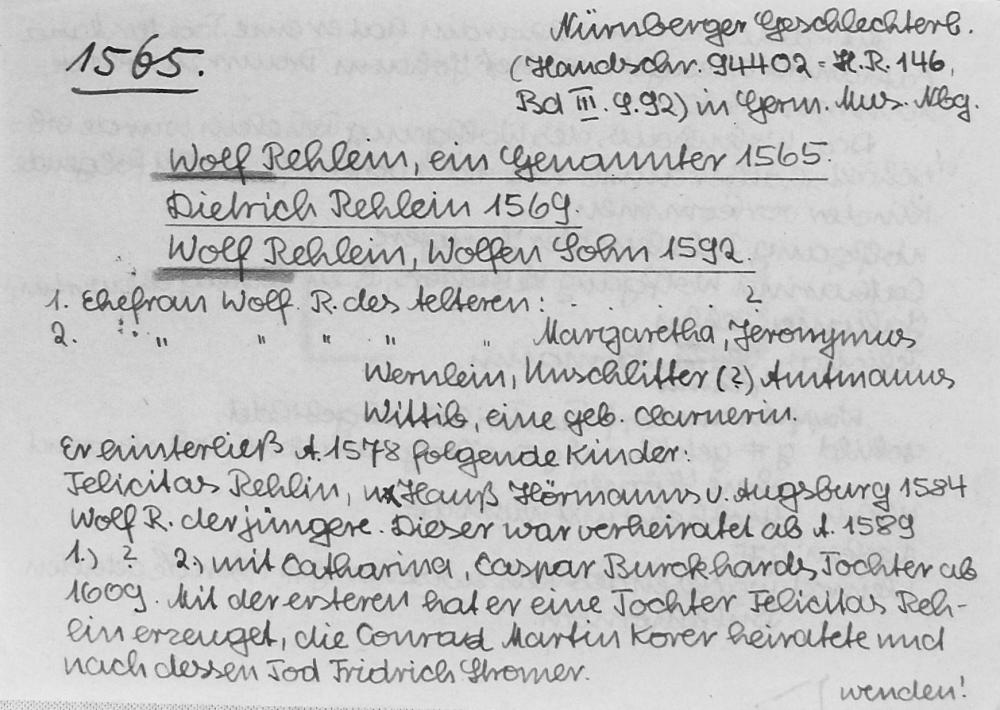 Nürnberger Geschlechterb.
1565.
(Handschr. 94402 = H.R. 146,
Bd III S. 92) in Germ. Mus. Nbg.
Wolf Rehlein, ein Genannter 1565.
Dietrich Rehlein 1569.
Wolf Rehlein, Wolfen Sohn 1592
1. Ehefrau Wolf R. des Aelteren: . ?
2. " " " " " Margaretha, Jeronymus
Wernlein, Unschlitter (?) Amtmanns
Wittib, eine geb. Clarnerin.
Er hinterließ A. 1578 folgende Kinder:
Felicitas Rehlin, ux Hanß Hörmanns v. Augsburg 1584
Wolf R. der jüngere. Dieser war verheiratet ab A. 1589
1.) ? 2.) mit Catharina, Caspar Burckhards Tochter ab
1609. Mit der ersteren hat er eine Tochter Felicitas Reh-
lin erzeuget, die Conrad Martin Korer heiratete und
nach dessen Tod Fridrich Stromer.
wenden!